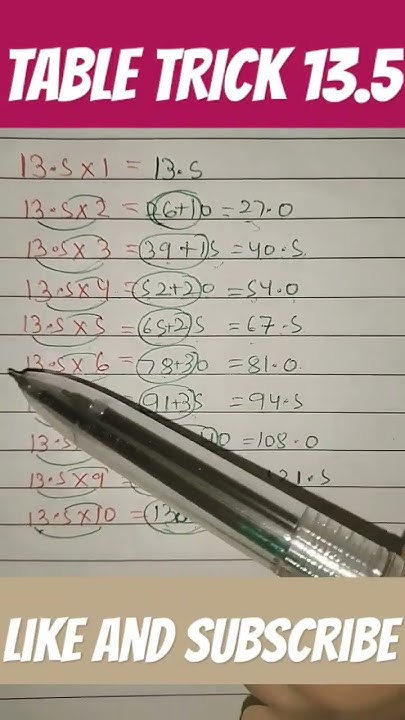 TABLE TRICK 13.5
13.5x1 = 13.5
13.5x2 = 26+10 = 27.0
13.5x3 = 39+15 = 40.5
13.5x4 = 52+20 = 54.0
13.5x5 = 65+25 = 67.5
13.5x6 = 78+30 = 81.0
= 91+35 = 94.5
13.5 40 = 108.0
13.5x9 = 21.5
13.5x10 = 130
LIKE AND SUBSCRIBE